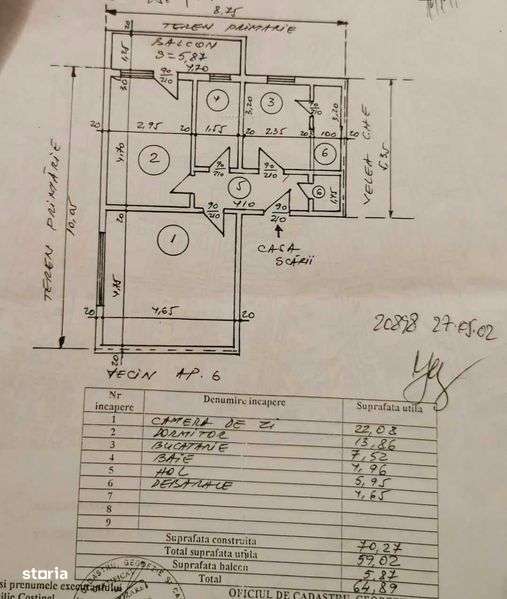 8.75
TEREN PRIMARIE
BALCON
S=5,87
4,70
1,25
20
90
210
30
3,20
4
3
2,95
20
1,55
20
2.35
20
100
20
3,20
6
4,70
2
90
210
90
210
5
4,10
6
1,45
90
210
90
210
TEREN PRIMĂRIE
10,05
VECEA GHE
6,35
20
1
CASA
SCĂRII
4,75
20
4,65
20
20
VECIN AP. 6
20898 27.05.02
Nr incapere Denumire incapere Suprafata utila
1 CAMERA DE ZI 22,03
2 DORMITOR 13,86
3 BUCATARIE 7,52
4 BAIE 4,96
5 HOL 5,95
6 DEBARALE 4,65
7
8
9
Suprafata construita 70,27
Total suprafata utila 59,02
Suprafata balcon 5,87
Total 64,89
storia
si prenumele executantului
OFICIUL DE CADASTRU
Costinel